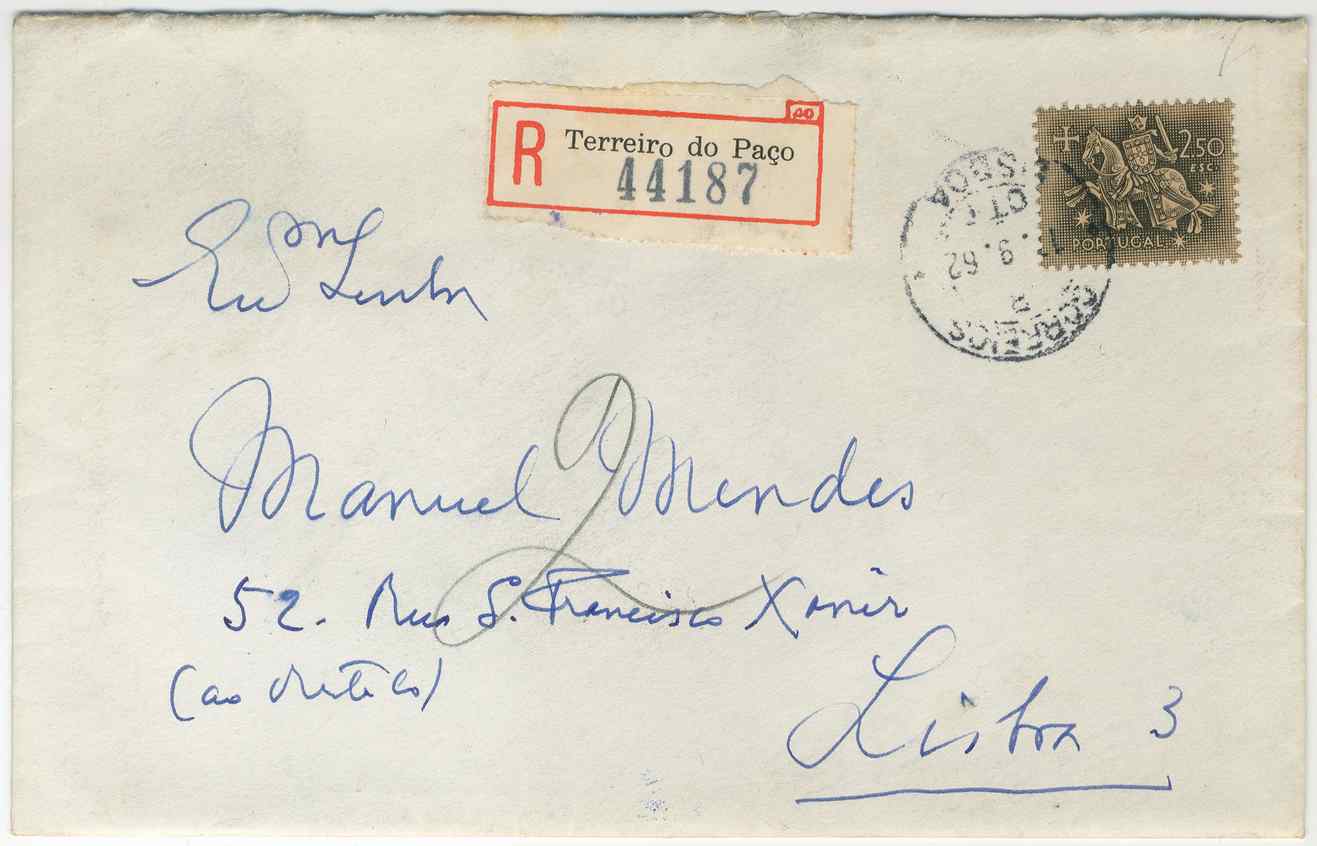 R Terreiro do Paço
44187
2$50
ESC.
PORTUGAL
LISBOA
9.62
CORREIOS
Exmº Senhor
Manuel Mendes
2
52. Rua S. Francisco Xavier
(ao Restelo)
Lisboa 3